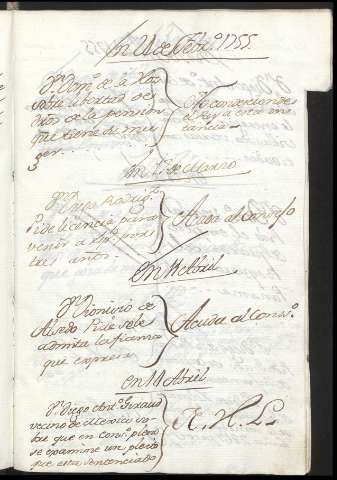 En 21 de Febr.º 1755.
Dn. Dom.º de la
sobre libertad de
dros de la pension
que tiene de mu
ger.
No condesciende
el Rey a esta ins
tancia.
En 13 de Marzo
Dn. Diego Rodrig.z
Pide licencia para
venir a por
tres años.
Acuda al Consejo
En 11 Abril
Dn. Dionisio de
Alsedo Pide se le
admita la fianza
que expresa
Acuda al Cons.º
En 14 Abril
Dn. Diego Ant.º Giraud
vecino de Mexico so-
bre que en Cons.º pleno
se examine un pleito
que esta sentenciado